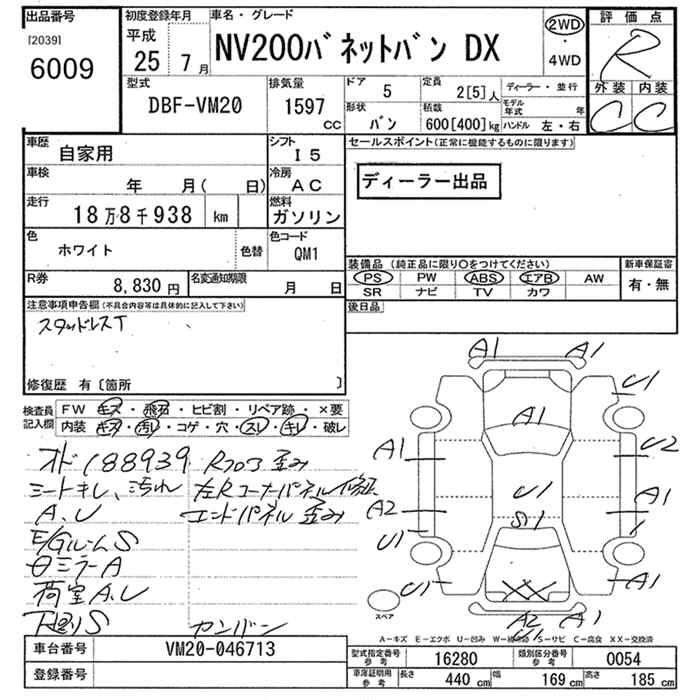 出品番号
[2039]
6009
初度登録年月
平成
25年7月
車名・グレード
NV200バネットバン DX
2WD
・
4WD
評価点
R
外装 内装
C C
型式
DBF-VM20
排気量
1597
CC
ドア
5
定員
2[5]人
ディーラー・並行
形状
バン
積数
600[400]kg
モデル年式 年
ハンドル 左・右
車歴
自家用
シフト
I5
車検
年 月( 日)
冷房
AC
走行
18万8千938 km
燃料
ガソリン
色
ホワイト
色替
色コード
QM1
R券
8,830円
名変通知期限
月 日
セールスポイント(正常に機能するものに限ります)
ディーラー出品
装備品(純正品に限り○をつけてください)
新車保証書
PS PW ABS エアB AW
SR ナビ TV カワ
有・無
後日品
注意事項申告欄(不具合内容等は具体的に記入して下さい)
スタッドレスT
修復歴 有〔箇所 〕
検査員
記入欄
FW キズ・飛石・ヒビ割・リペア跡・×要
内装 キズ・汚レ・コゲ・穴・スレ・キレ・破レ
オド188939 Rフロア歪み
シートキレ、汚れ 左Rコーナーパネル修正
A.U エンドパネル歪み
E/GルームS
日ミラーA
荷室A.U
下廻りS
カンバン
車台番号
VM20-046713
登録番号
A1 A1
U1
A1
A1
U2
A2
U1
A1
S1
U1
1
U1
A1
A2
U1
スペア
A−キズ E−エクボ U−凹み W−補修跡 S−サビ C−腐食 XX−交換済
型式指定番号
参考
16280
類別区分番号
参考
0054
車庫証明用
参考
長さ 440 cm 幅 169 cm 高さ 185 cm